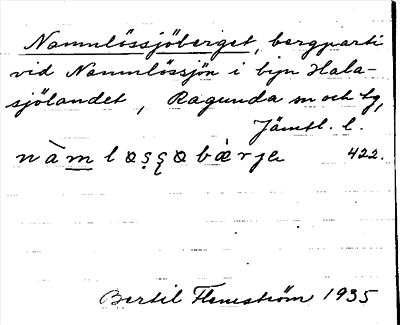 Namnlössjöberget, bergparti
vid Namnlössjön i byn Hala-
sjölandet, Ragunda sn och tg,
Jämtl. l.
422.
Bertil Flemström 1935